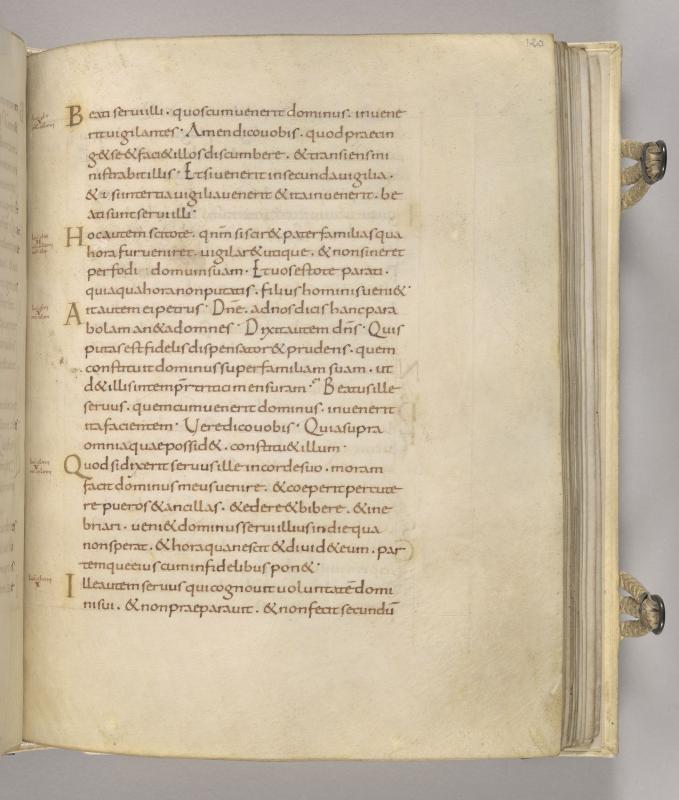 120
Beati serui illi · quos cum uenerit dominus · inuene
rit uigilantes · Amen dico uobis · quod praecin
g&se & faci& illos discumbere · & transiens mi
nistrabit illis · Et si uenerit in secunda uigilia ·
& si in tertia uigilia uenerit & ita inuenerit · be
ati sunt serui illi ·
Hoc autem scitote · qm̄ si scir& pater familias qua
hora fur ueniret · uigilar& utique · & non sineret
perfodi domum suam · Et uos estote parati ·
quia qua hora non putatis · filius hominis ueni& ·
Ait autem ei petrus · Dn̄e · ad nos dicis hanc para
bolam an & ad omnes · Dixit autem dn̄s · Quis
putas est fidelis dispensator & prudens · quem
constituit dominus super familiam suam · ut
d& illis in tempr̄ tritici mensuram · Beatus ille
seruus · quem cum uenerit dominus · inuenerit
ita facientem · Uere dico uobis · Quia supra
omnia quae possid& · constitu& illum ·
Quod si dixerit seruus ille in corde suo · moram
facit dominus meus uenire · & coeperit percute
re pueros & ancillas · & edere & bibere · & ine
briari · ueni& dominus serui illius in die qua
non sperat · & hora qua nescit & diuid& eum · par
temque eius cum infidelibus pon& ·
Ille autem seruus qui cognouit uoluntatē domi
ni sui · & non praeparauit · & non fecit secundū